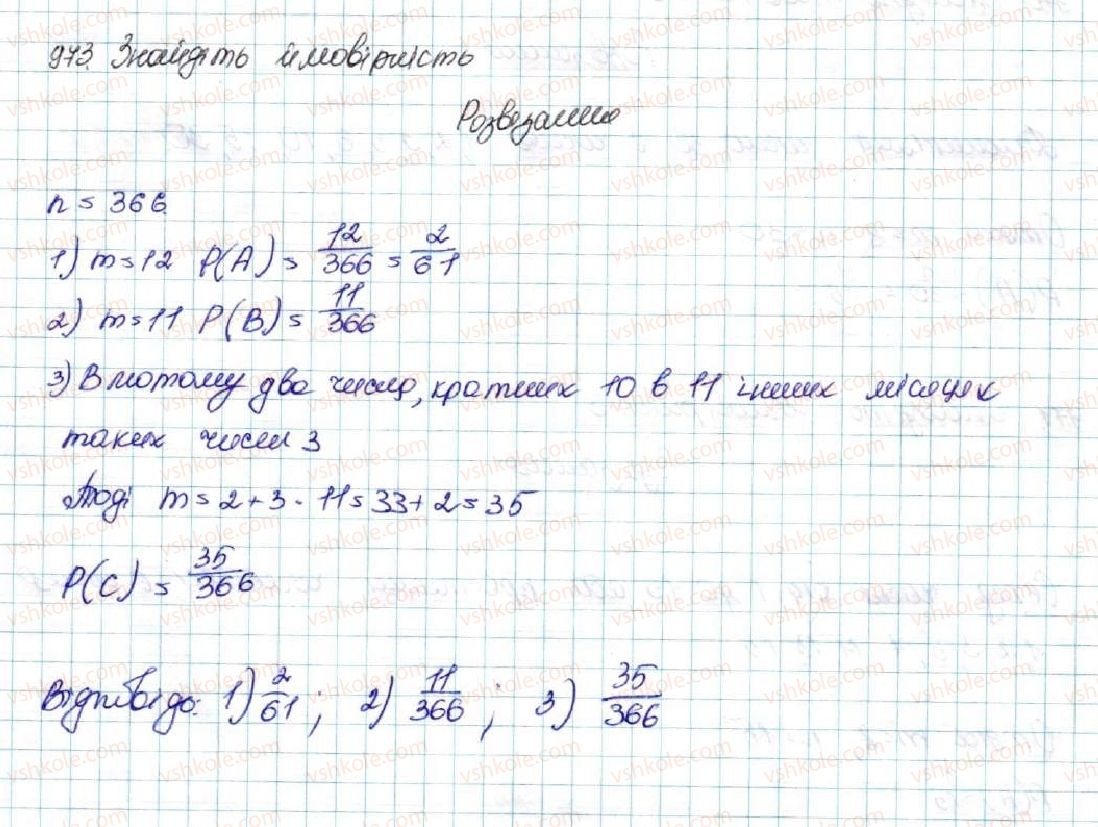 973. Знайдіть ймовірність
Розвезання
n = 366
1) m=12 P(A) = 12/366 = 2/61
2) m=11 P(B) = 11/366
3) В лютому два числа, кратних 10 в 11 інших місяцях
таких чисел 3
Тоді m = 2 + 3 · 11 = 33 + 2 = 35
P(C) = 35/366
Відповідь: 1) 2/61 ; 2) 11/366 ; 3) 35/366
vshkole.com